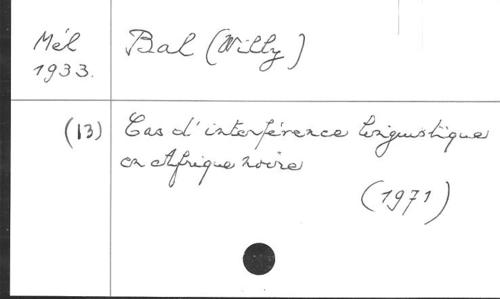 Mél
1933.
Bal (Willy)
(13)
Cas d'interférence linguistique
en Afrique noire
(1971)